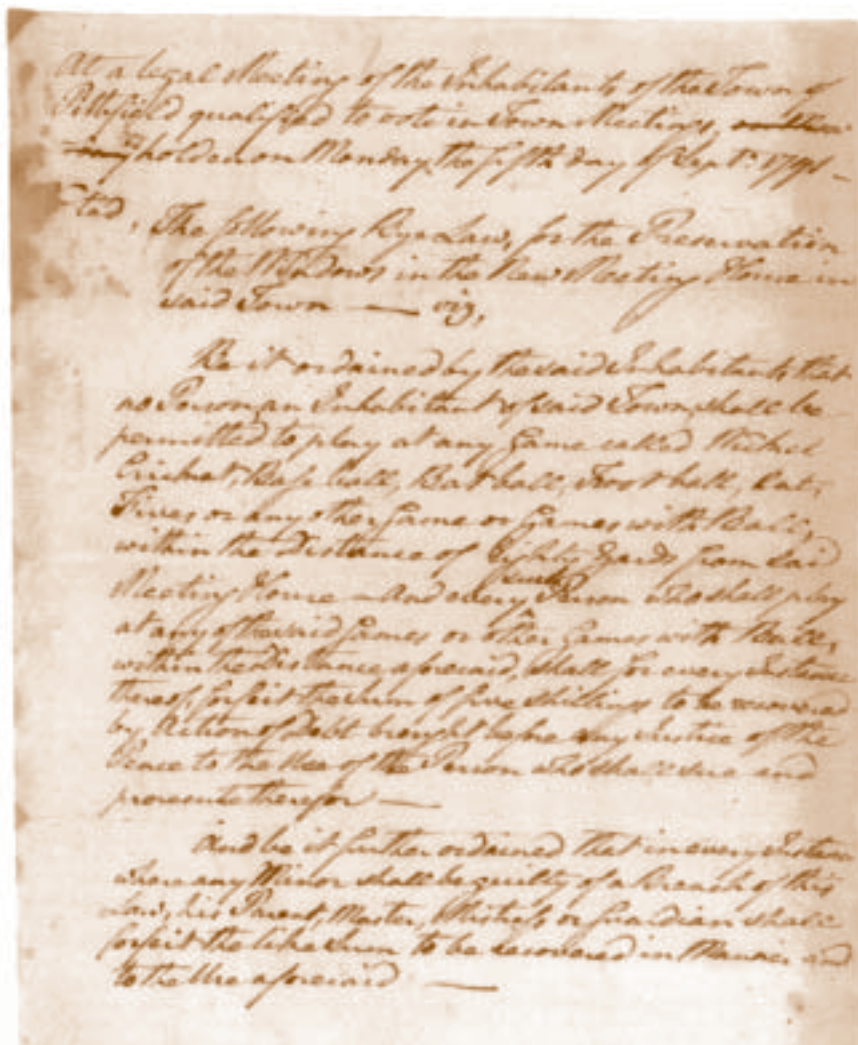 At a legal Meeting of the Inhabitants of the Town of
Pittsfield qualified to vote in Town Meetings,
holden on Monday the fifth day of Sept. 1791 —
The following Bye-Law, for the Preservation
of the Windows in the New Meeting House in
said Town — viz,
Be it ordained by the said Inhabitants that
no Person, an Inhabitant of said Town, shall be
permitted to play at any Game called Wicket,
Cricket, Base ball, Bat ball, Foot ball, Cat,
Fives or any other Game or Games with Ball,
within the Distance of Eighty Yards from said
Meeting House — And every such Person who shall play
at any of the said Games or other Games with Ball,
within the Distance aforesaid, shall for every Instance
thereof, forfeit the sum of five shillings to be recovered
by Action of Debt brought before any Justice of the
Peace to the Use of the Person who shall sue and
prosecute therefor —
And be it further ordained that in every Instance
where any Minor shall be guilty of a Breach of this
Law, his Parent, Master, Mistress or Guardian shall
forfeit the like sum to be recovered in Manner and
to the Use aforesaid —